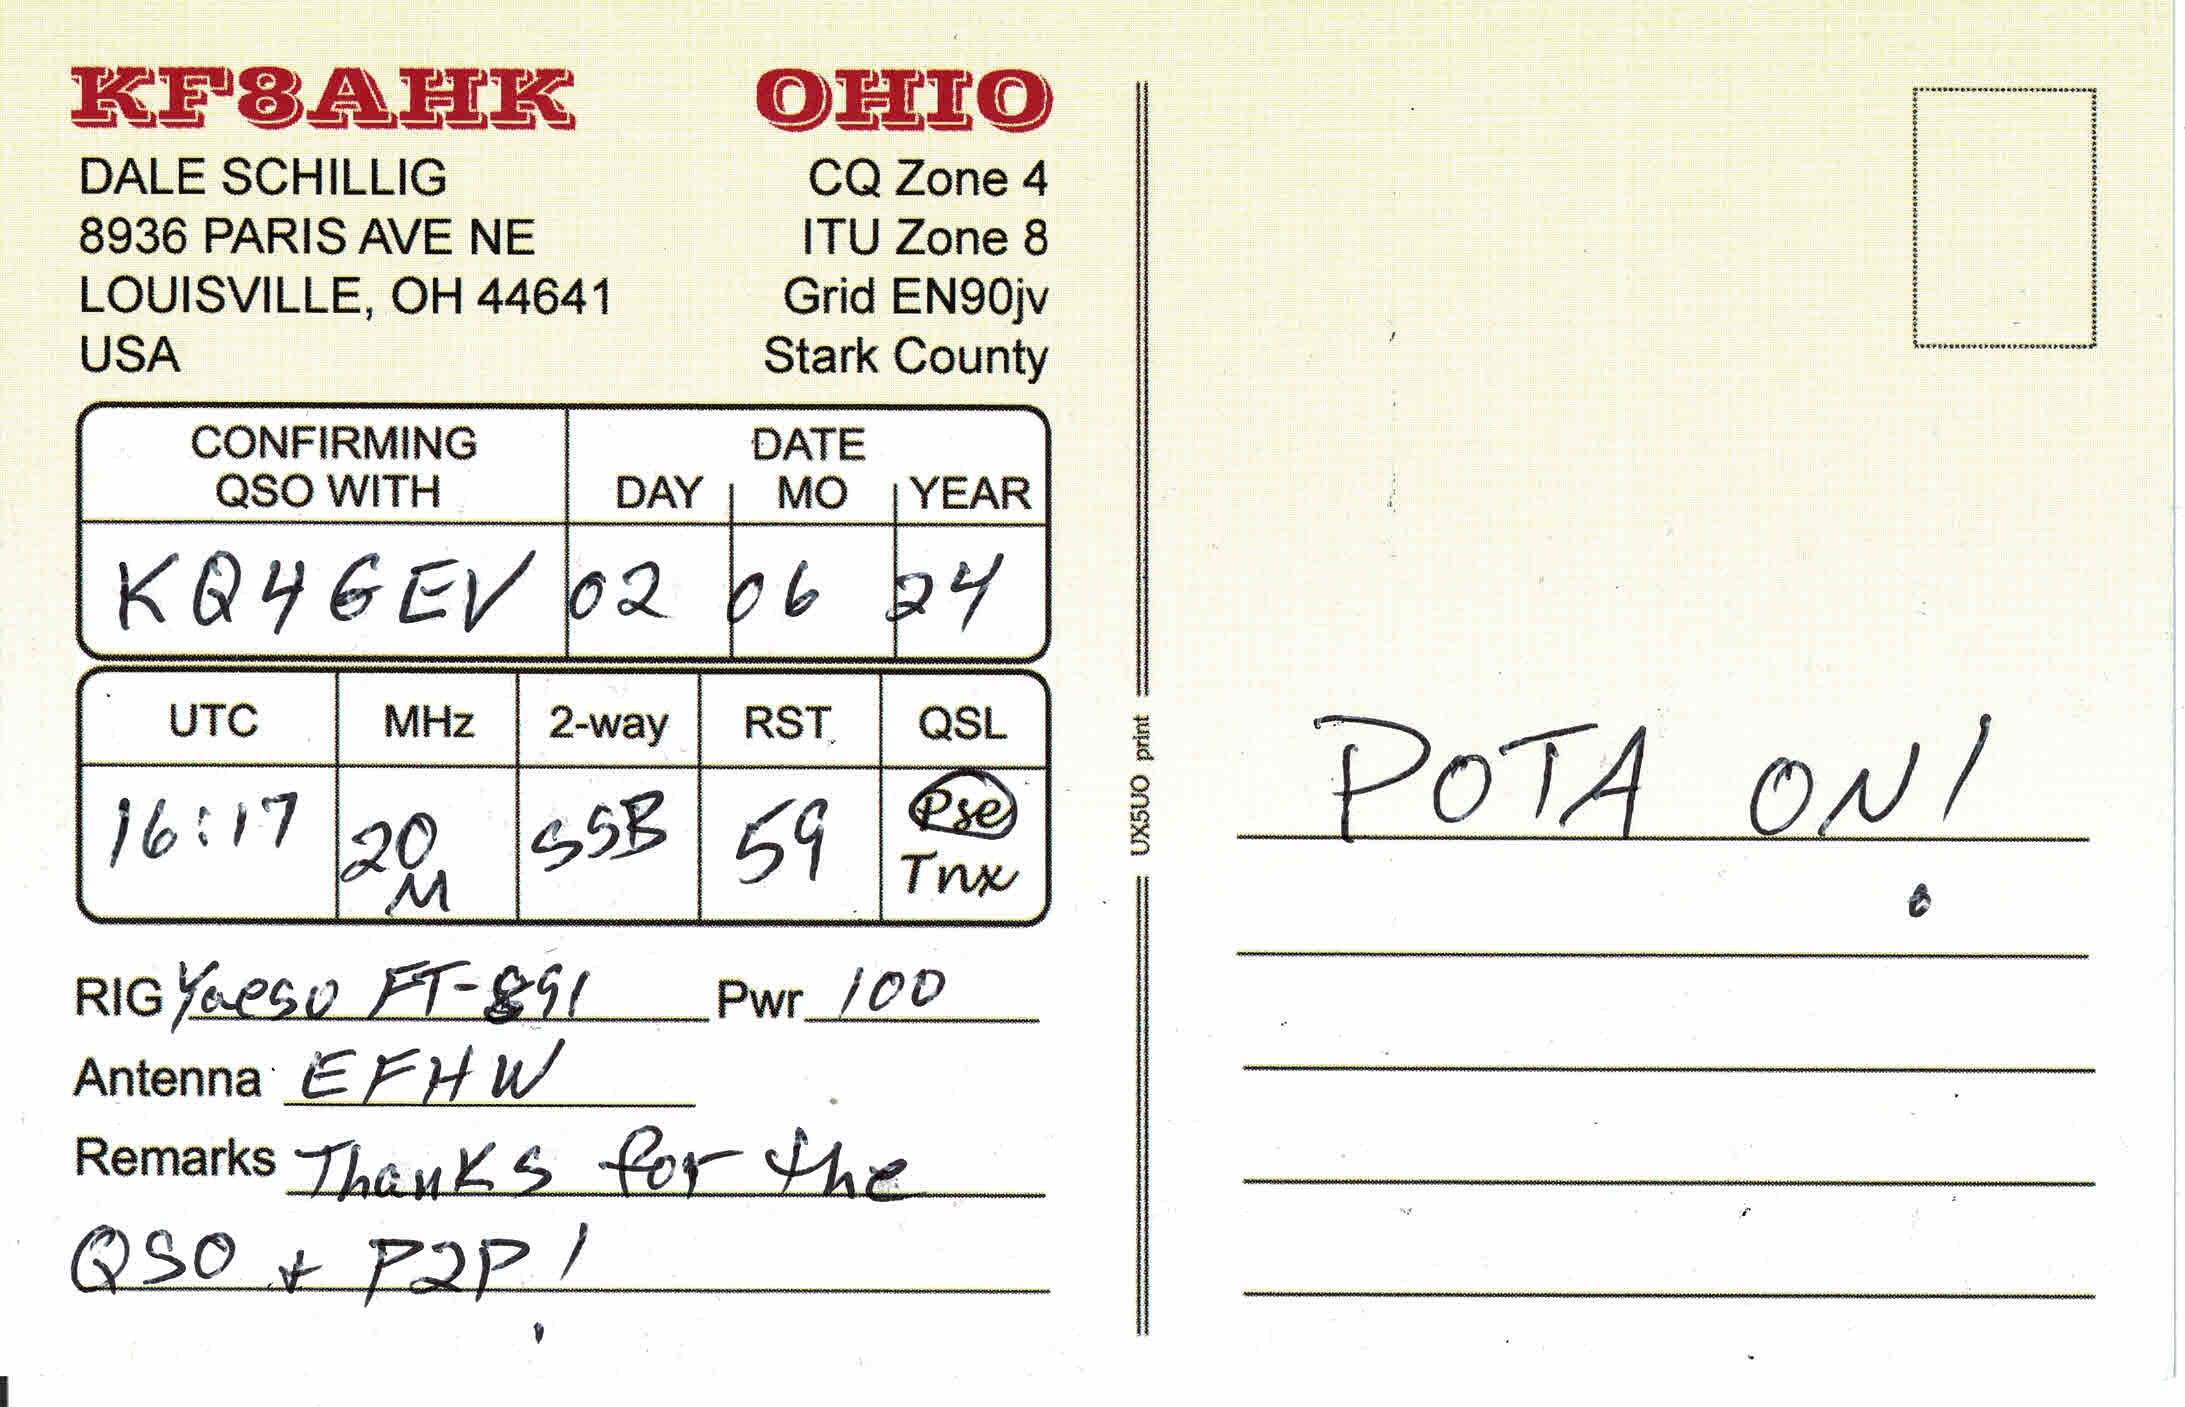 KF8AHK OHIO
DALE SCHILLIG CQ Zone 4
8936 PARIS AVE NE ITU Zone 8
LOUISVILLE, OH 44641 Grid EN90jv
USA Stark County
CONFIRMING QSO WITH DATE
DAY MO YEAR
KQ4GEV 02 06 24
UTC MHz 2-way RST QSL
16:17 20 M SSB 59 Pse
Tnx
RIG Yaesu FT-891 Pwr 100
Antenna EFHW
Remarks Thanks for the
QSO + P2P!
UX5UO print
POTA ON!